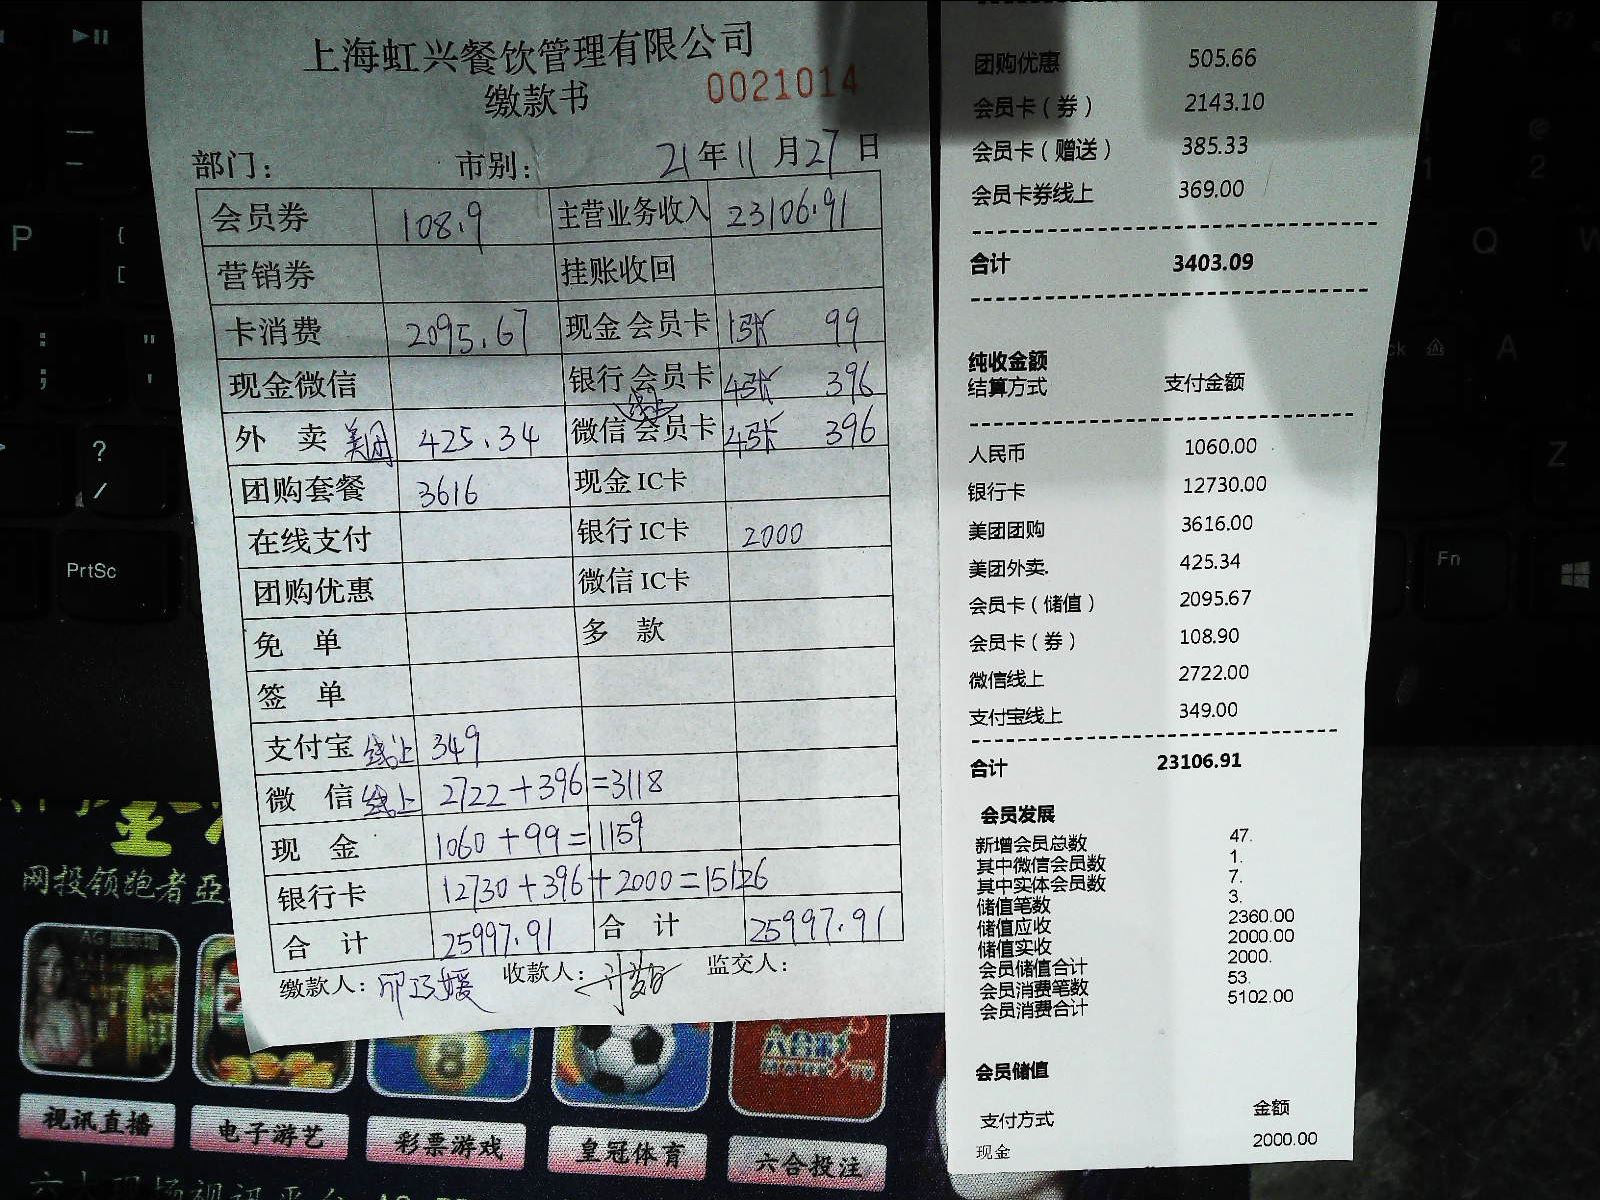 上海虹兴餐饮管理有限公司
缴款书
0021014
部门： 市别： 21年11月27日
会员券 108.9 主营业务收入 23106.91
营销券 挂账收回
卡消费 2095.67 现金会员卡 1张 99
现金微信 银行会员卡 4张 396
外卖 美团 425.34 微信会员卡 线上 4张 396
团购套餐 3616 现金IC卡
在线支付 银行IC卡 2000
团购优惠 微信IC卡
免单 多款
签单
支付宝 线上 349
微信 线上 2722+396=3118
现金 1060+99=1159
银行卡 12730+396+2000=15126
合计 25997.91 合计 25997.91
缴款人： 收款人： 监交人：
团购优惠 505.66
会员卡（券） 2143.10
会员卡（赠送） 385.33
会员卡券线上 369.00
合计 3403.09
纯收金额
结算方式 支付金额
人民币 1060.00
银行卡 12730.00
美团团购 3616.00
美团外卖. 425.34
会员卡（储值） 2095.67
会员卡（券） 108.90
微信线上 2722.00
支付宝线上 349.00
合计 23106.91
会员发展
新增会员总数 47.
其中微信会员数 1.
其中实体会员数 7.
储值笔数 3.
储值应收 2360.00
储值实收 2000.00
会员储值合计 2000.
会员消费笔数 53.
会员消费合计 5102.00
会员储值
支付方式 金额
现金 2000.00
P
{
[
:
;
"
'
?
/
PrtSc
Q
A
Z
Fn
2
网投领跑者亞
AG 国际馆
视讯直播
电子游艺
彩票游戏
皇冠体育
六合投注